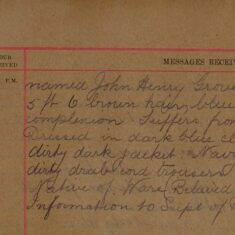 OUR
EIVED
MESSAGES RECEI
P.M.
named John Henry Grove
5 ft 6 brown hair blue
complexion Suffers from
Dressed in dark blue cl
dirty dark jacket Navy
dirty drab cord trousers
Native of Ware Belaied
Information to Supt of